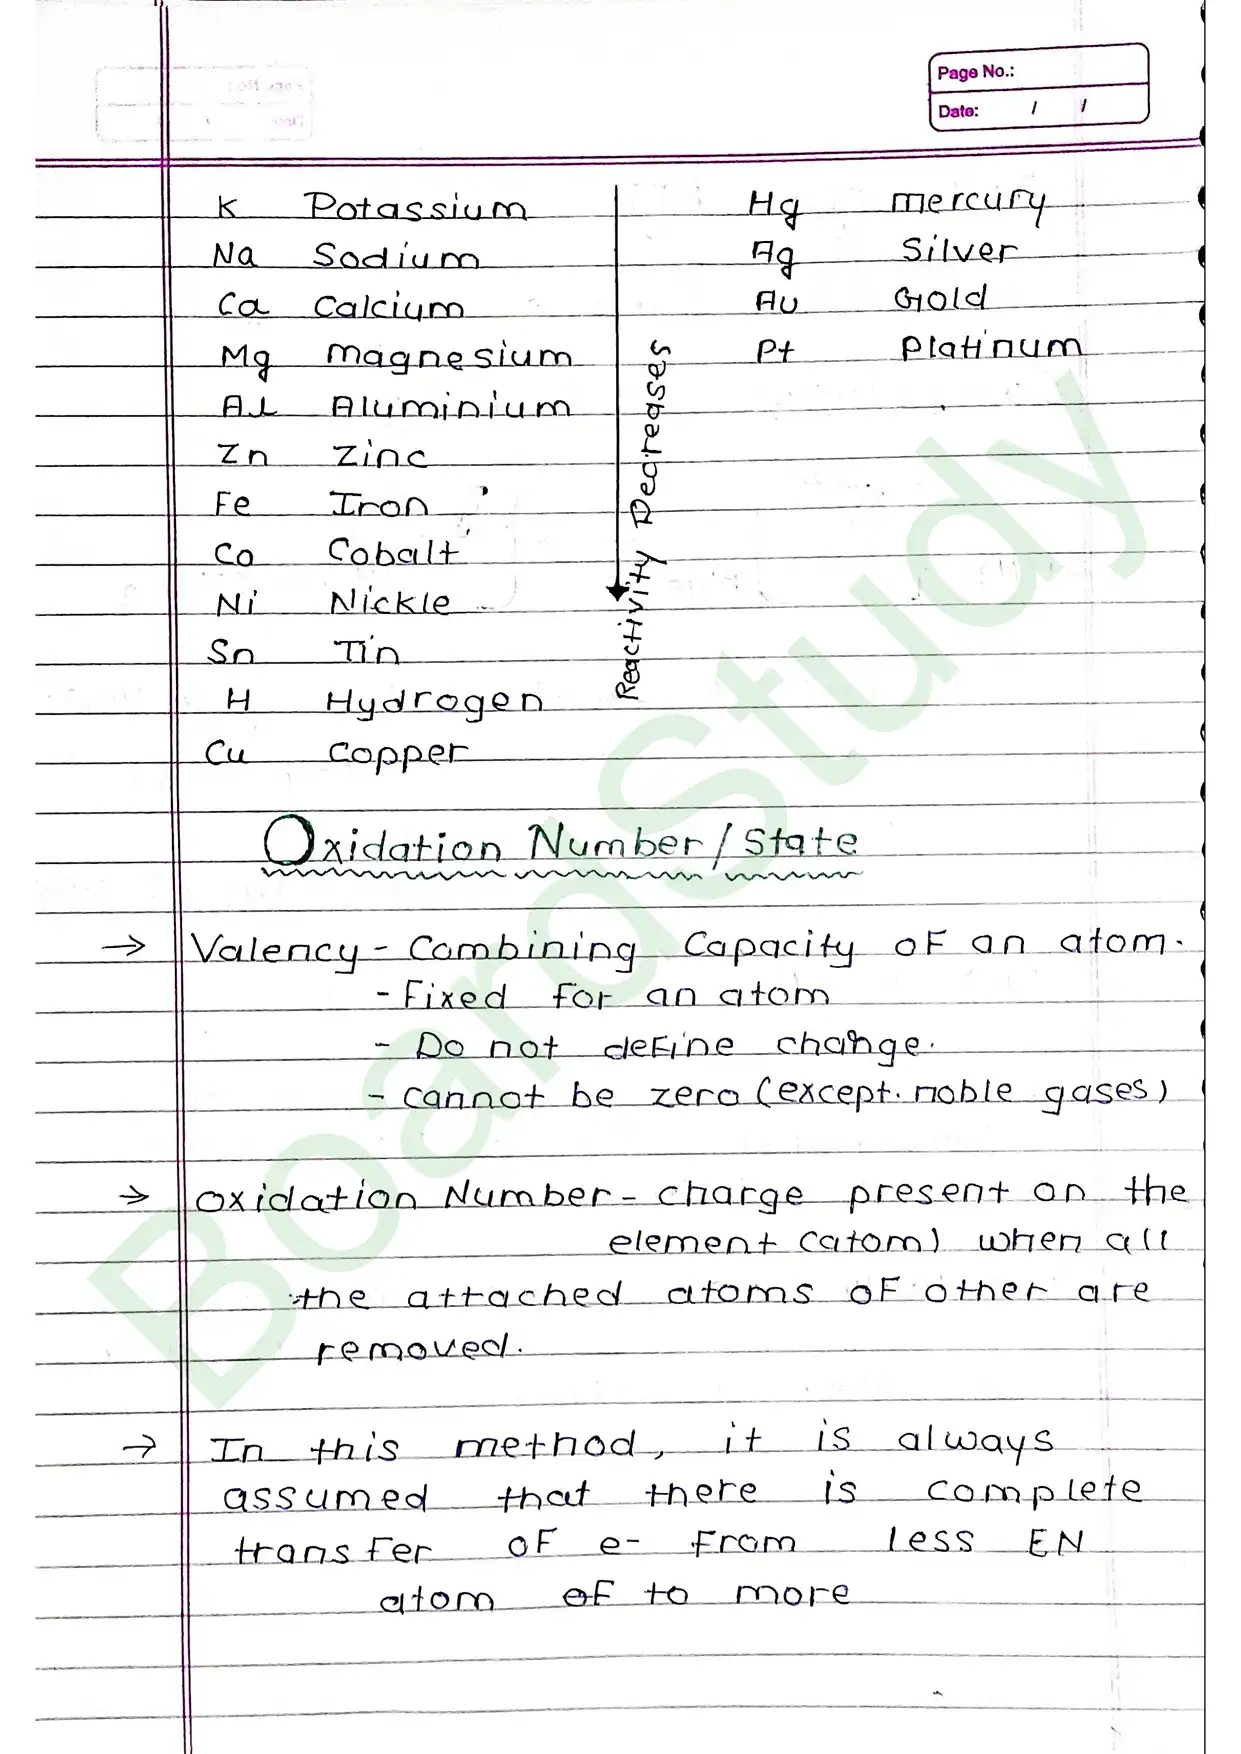 Page No.:
Date: / /
K Potassium
Na Sodium
Ca Calcium
Mg Magnesium
Al Aluminium
Zn Zinc
Fe Iron
Co Cobalt
Ni Nickle
Sn Tin
H Hydrogen
Cu Copper
Reactivity Decreases
Hg Mercury
Ag Silver
Au Gold
Pt Platinum
Oxidation Number / State
→ Valency - Combining Capacity of an atom.
- Fixed for an atom
- Do not define change.
- cannot be zero (except. noble gases)
→ Oxidation Number - charge present on the
element (atom) when all
the attached atoms of other are
removed.
→ In this method, it is always
assumed that there is complete
transfer of e- from less EN
atom of to more
BoardStudy